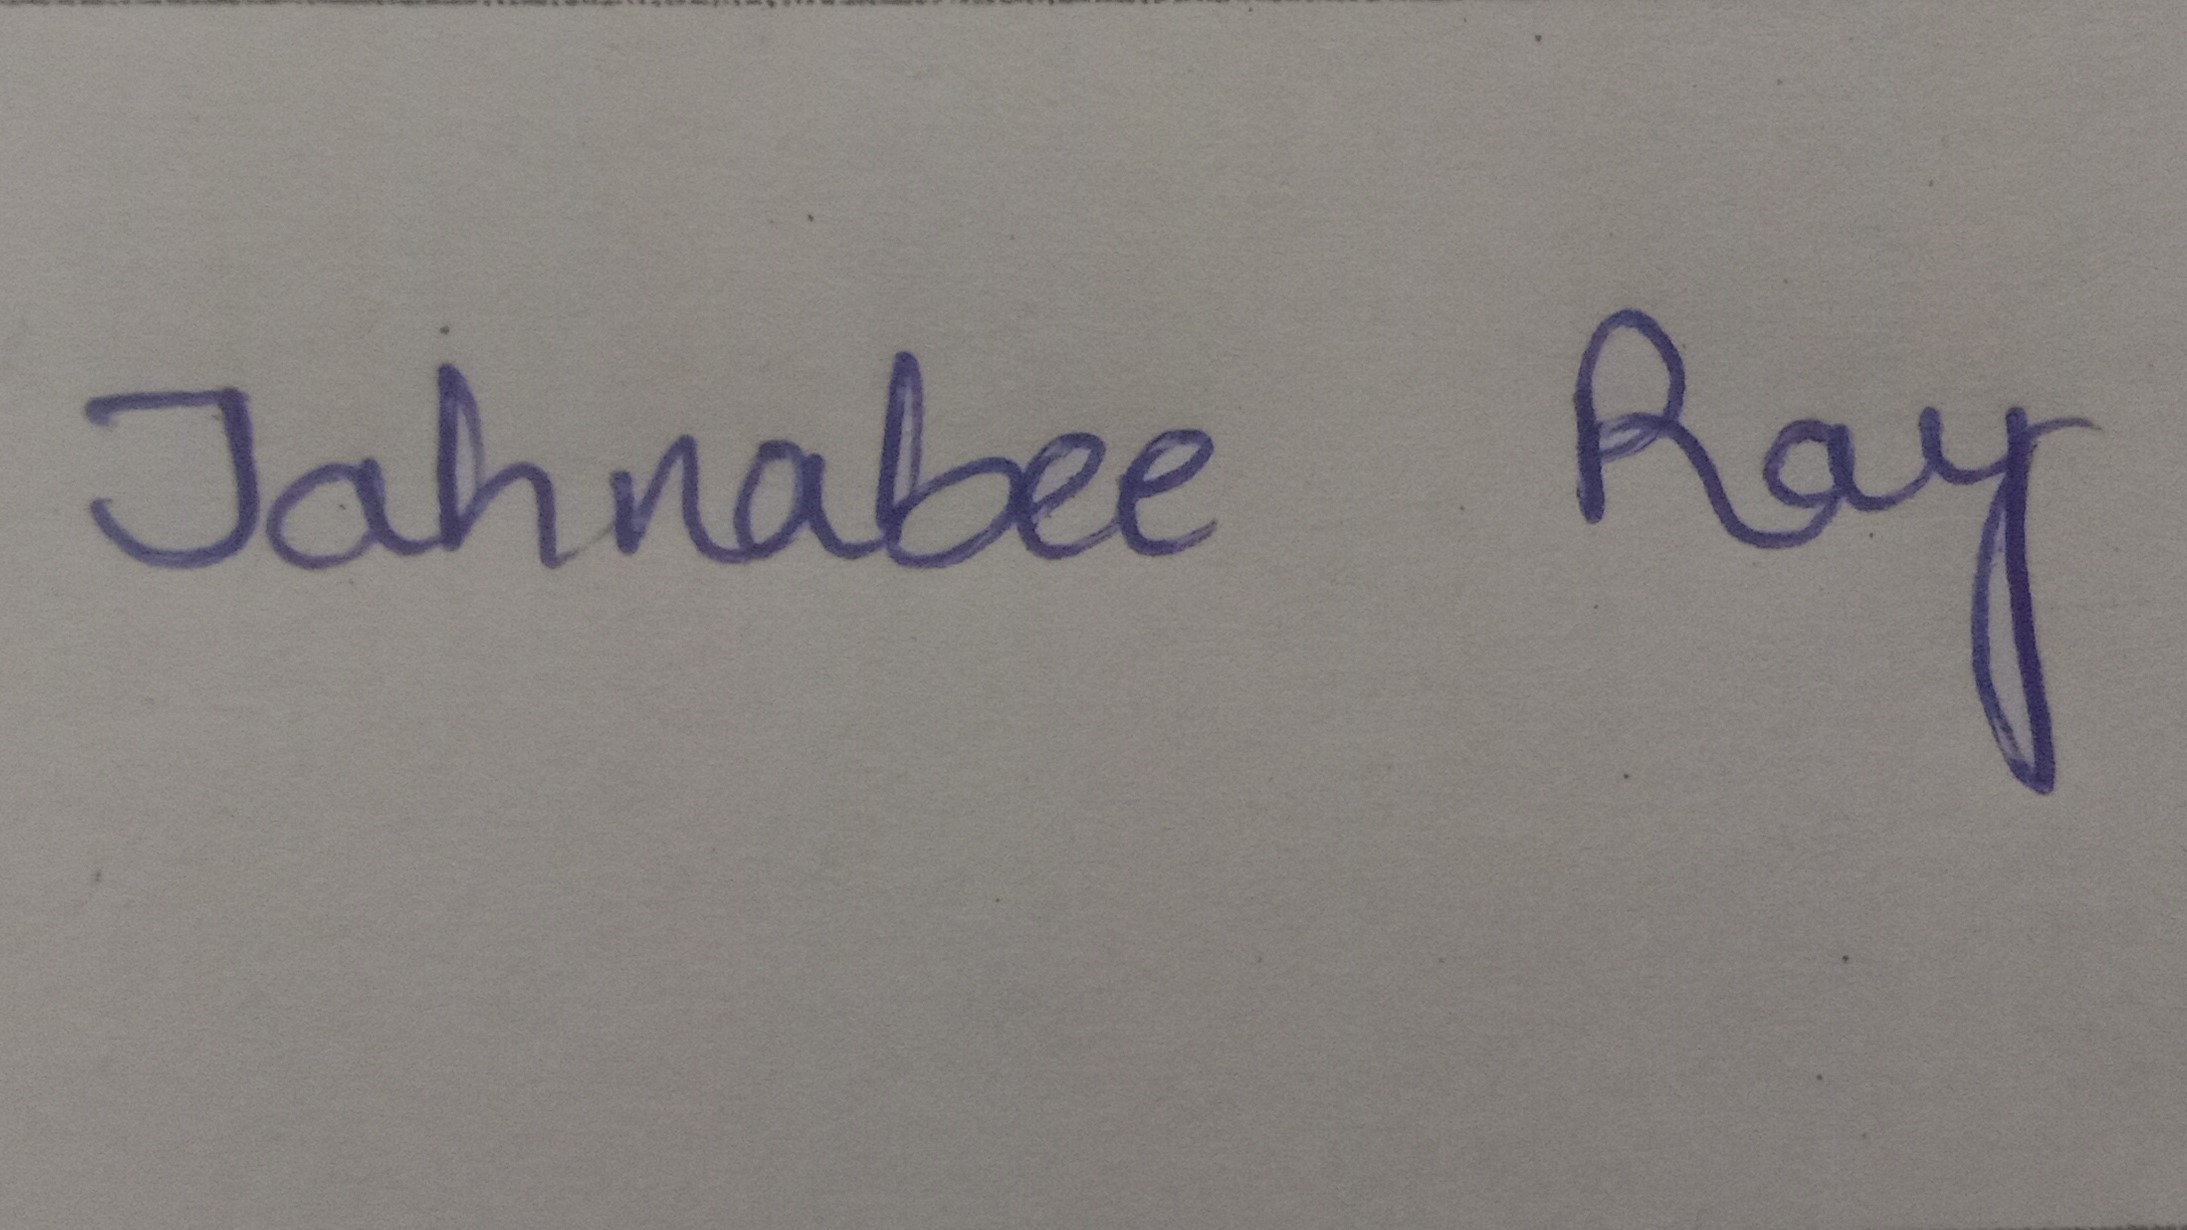 Jahnabee Ray